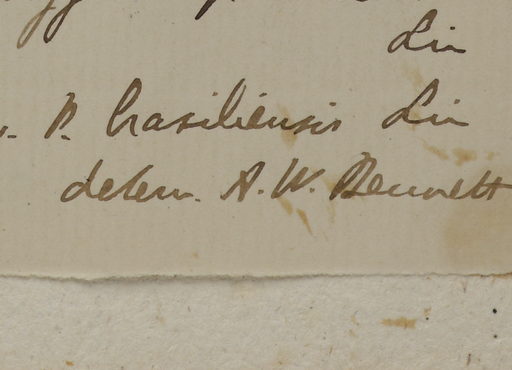 Lin
P. brasiliensis Lin
determ. A. W. Bennett